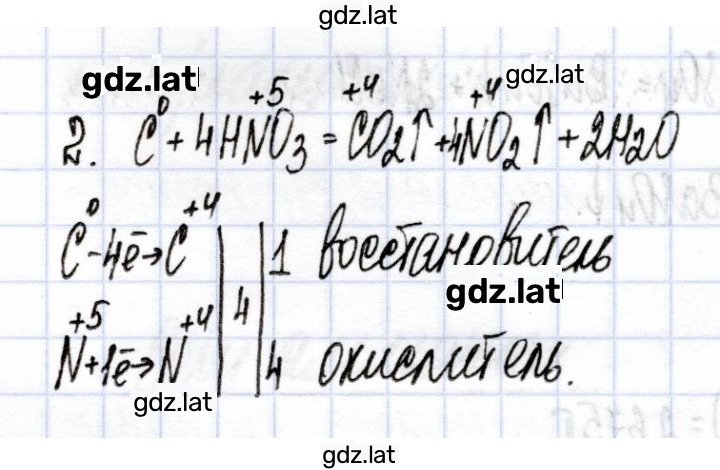 gdz.lat
gdz.lat gdz.lat
0 +5 +4 +4
2. C + 4HNO3 = CO2↑ + 4NO2↑ + 2H2O
0 +4
C - 4ē → C | | 1 восстановитель
gdz.lat
+5 +4 4
N + 1ē → N | | 4 окислитель.
gdz.lat
gdz.lat